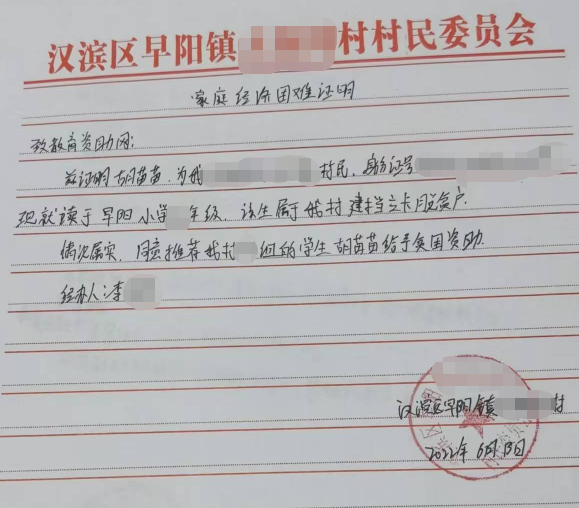 汉滨区早阳镇 村村民委员会
家庭经济困难证明
致教育资助网:
兹证明胡苗苗,为我 村民,身份证号
现就读于早阳小学 年级,该生属于我村建档立卡脱贫户.
情况属实,同意推荐我村 组的学生胡苗苗给予贫困资助.
经办人:李
汉滨区早阳镇 村
2022年6月13日